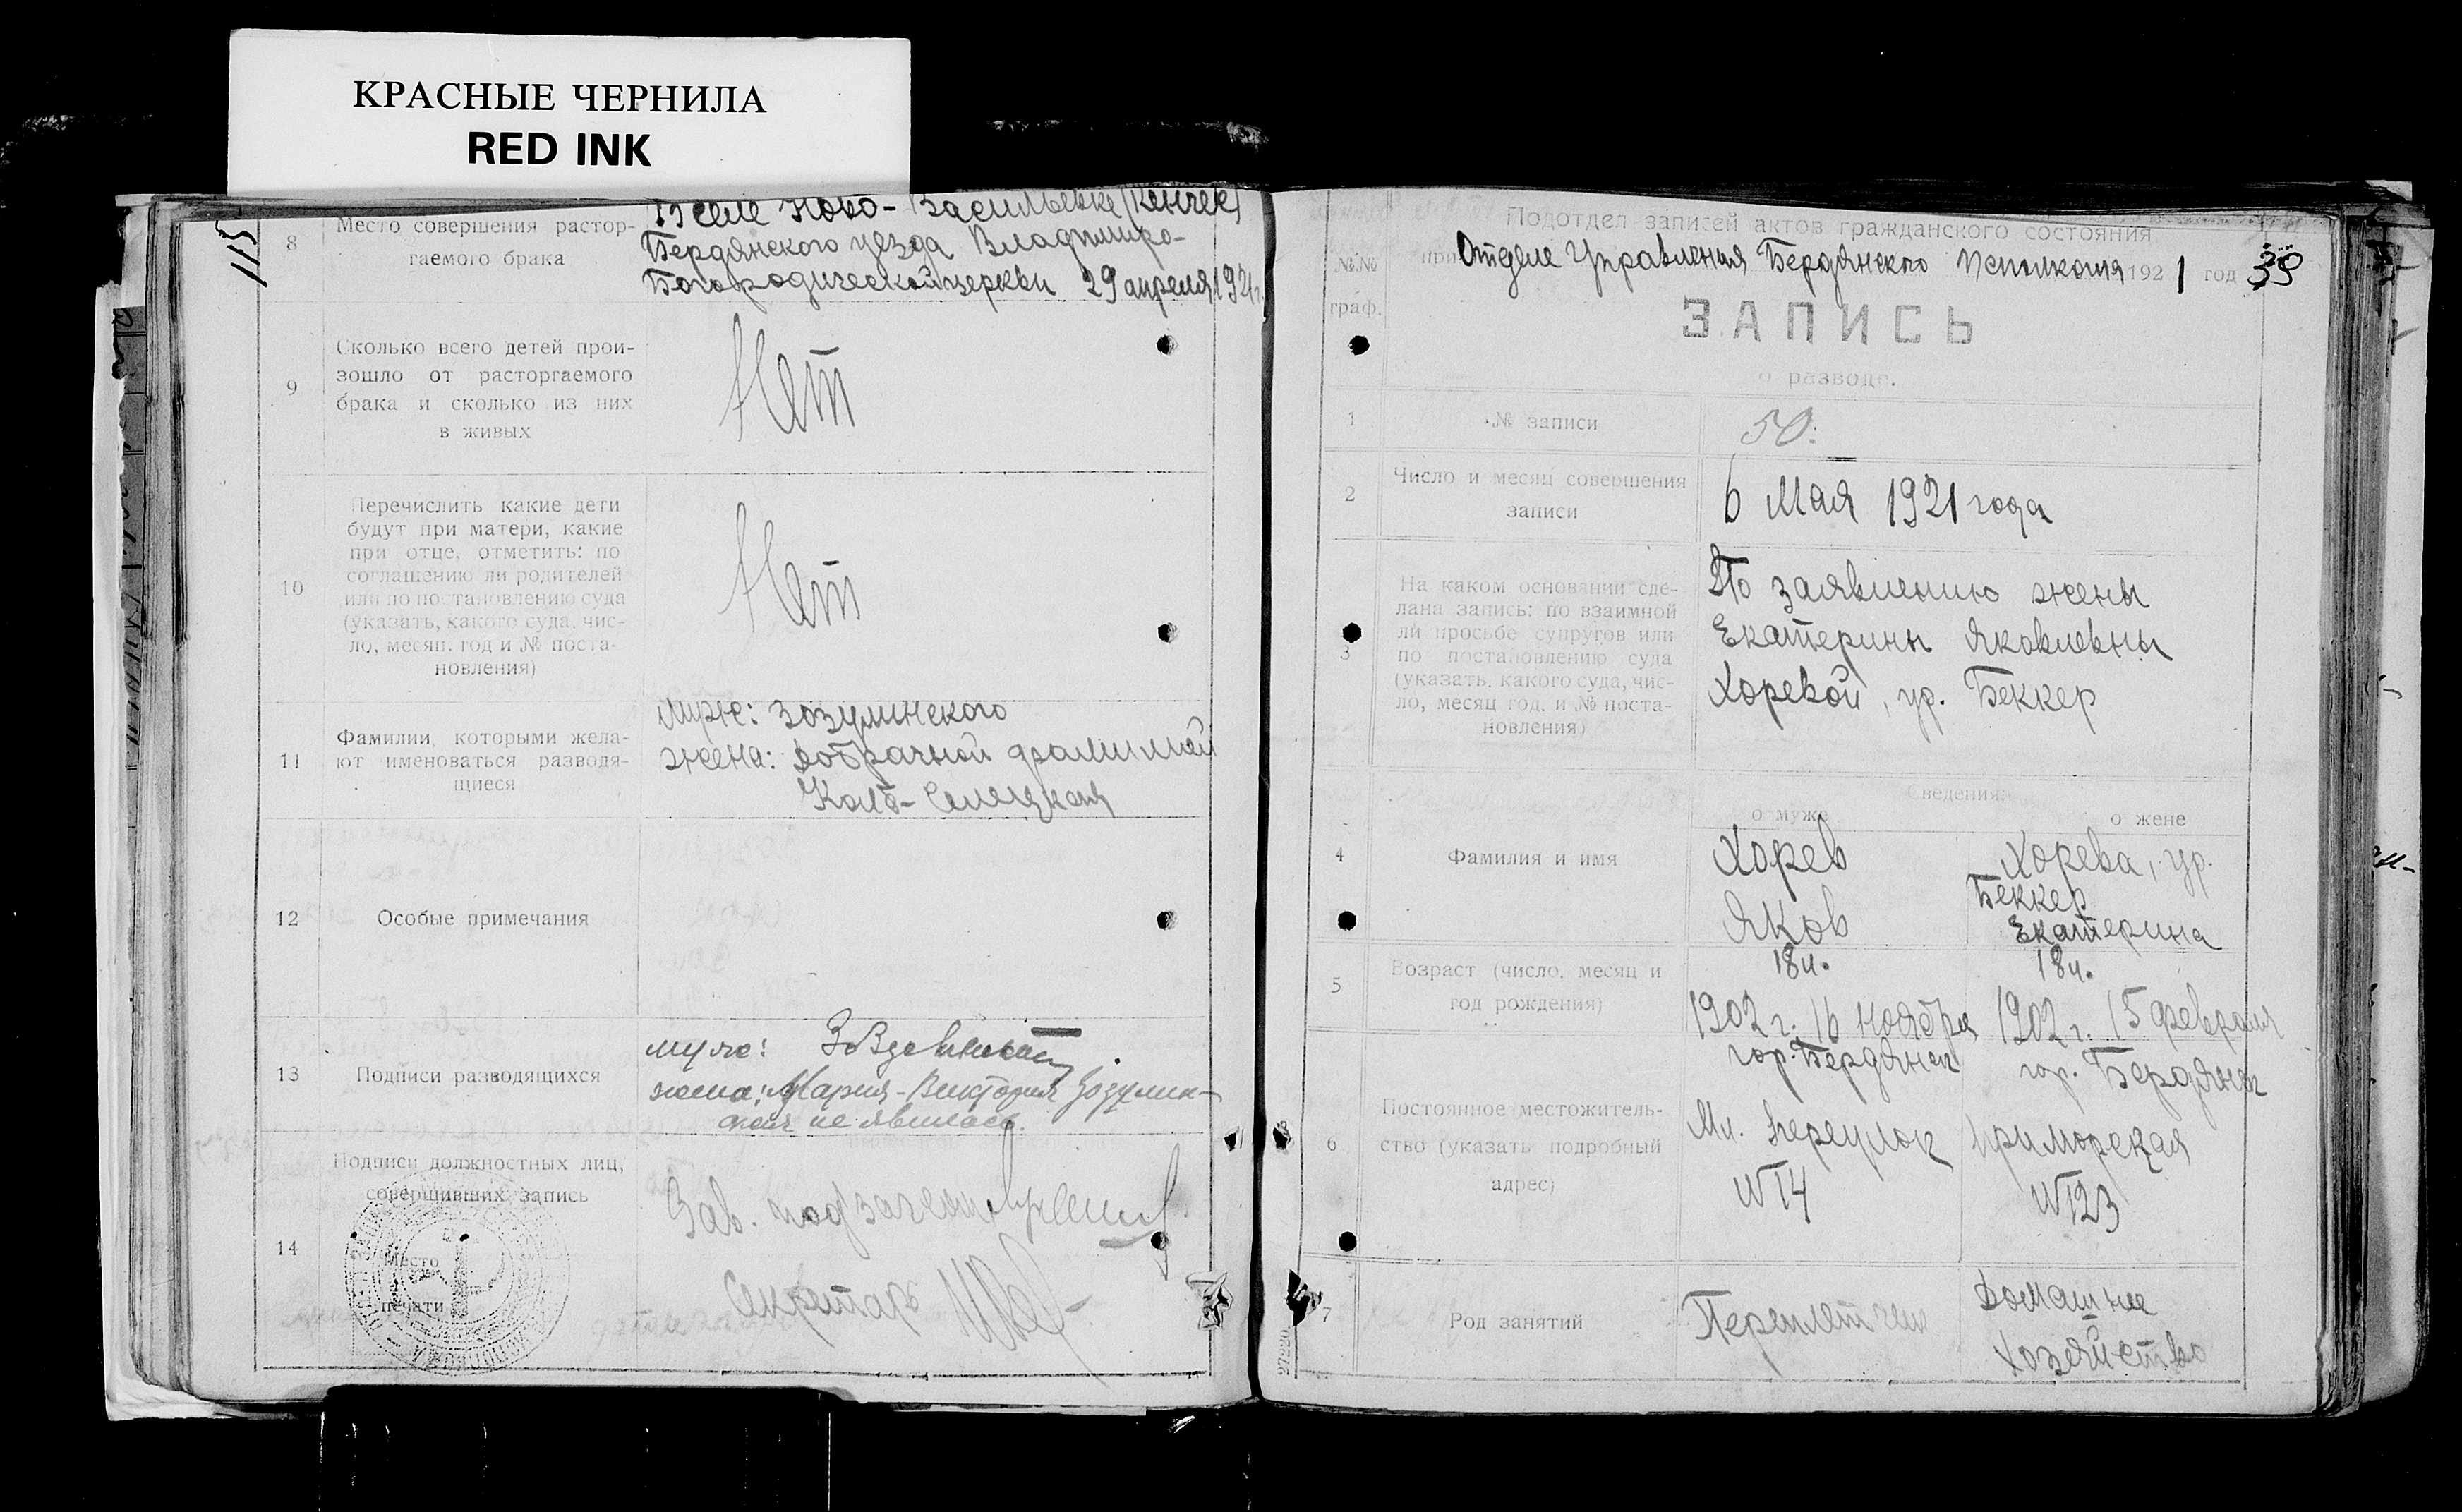 КРАСНЫЕ ЧЕРНИЛА
RED INK
115
8
Место совершения растор-
гаемого брака
В селе Ново-Васильевке (Кенчек)
Бердянского уезда Владимиро-
Богородической церкви 29 апреля 1921 г.
9
Сколько всего детей прои-
зошло от расторгаемого
брака и сколько из них
в живых
Нет
10
Перечислить какие дети
будут при матери, какие
при отце, отметить: по
соглашению ли родителей
или по постановлению суда
(указать, какого суда, чис-
ло, месяц, год и № поста-
новления)
Нет
11
Фамилии, которыми жела-
ют именоваться разводя-
щиеся
муж: Зозулинского
жена: добрачной фамилией
12
Особые примечания
13
Подписи разводящихся
муж:
жена: Мария-Виктория Зозулин-
ская не явилась.
14
Подписи должностных лиц,
совершивших запись
Место
печати
Зав.
Секретарь
Подотдел записей актов гражданского состояния
№№
граф.
при Отделе Управления Бердянского Исполкома 1921 год
39
ЗАПИСЬ
о разводе.
1
№ записи
50.
2
Число и месяц совершения
записи
6 Мая 1921 года
3
На каком основании сде-
лана запись: по взаимной
ли просьбе супругов или
по постановлению суда
(указать, какого суда, чис-
ло, месяц, год, и № поста-
новления)
По заявлению жены
Екатерины Яковлевны
Хоревой, ур. Беккер
Сведения:
о муже
о жене
4
Фамилия и имя
Хорев
Яков
Хорева, ур.
Беккер
Екатерина
5
Возраст (число, месяц и
год рождения)
18 л.
1902 г. 16 ноября
18 л.
1902 г. 15 февраля
6
Постоянное местожитель-
ство (указать подробный
адрес)
гор. Бердянск
Мл. переулок
№ 14
гор. Бердянск
Приморская
№ 123
7
Род занятий
Переплетчик
Домашнее
хозяйство
27220